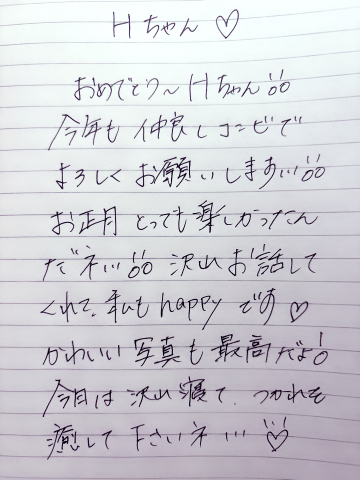 Hちゃん♡
おめでとう〜Hちゃん!!
今年も仲良しコンビで
よろしくお願いします!!!
お正月とっても楽しかったん
だネ!!! 沢山お話して
くれて、私もhappyです♡
かわいい写真も最高だよ!
今日は沢山寝て、つかれを
癒して下さいネ!!!♡